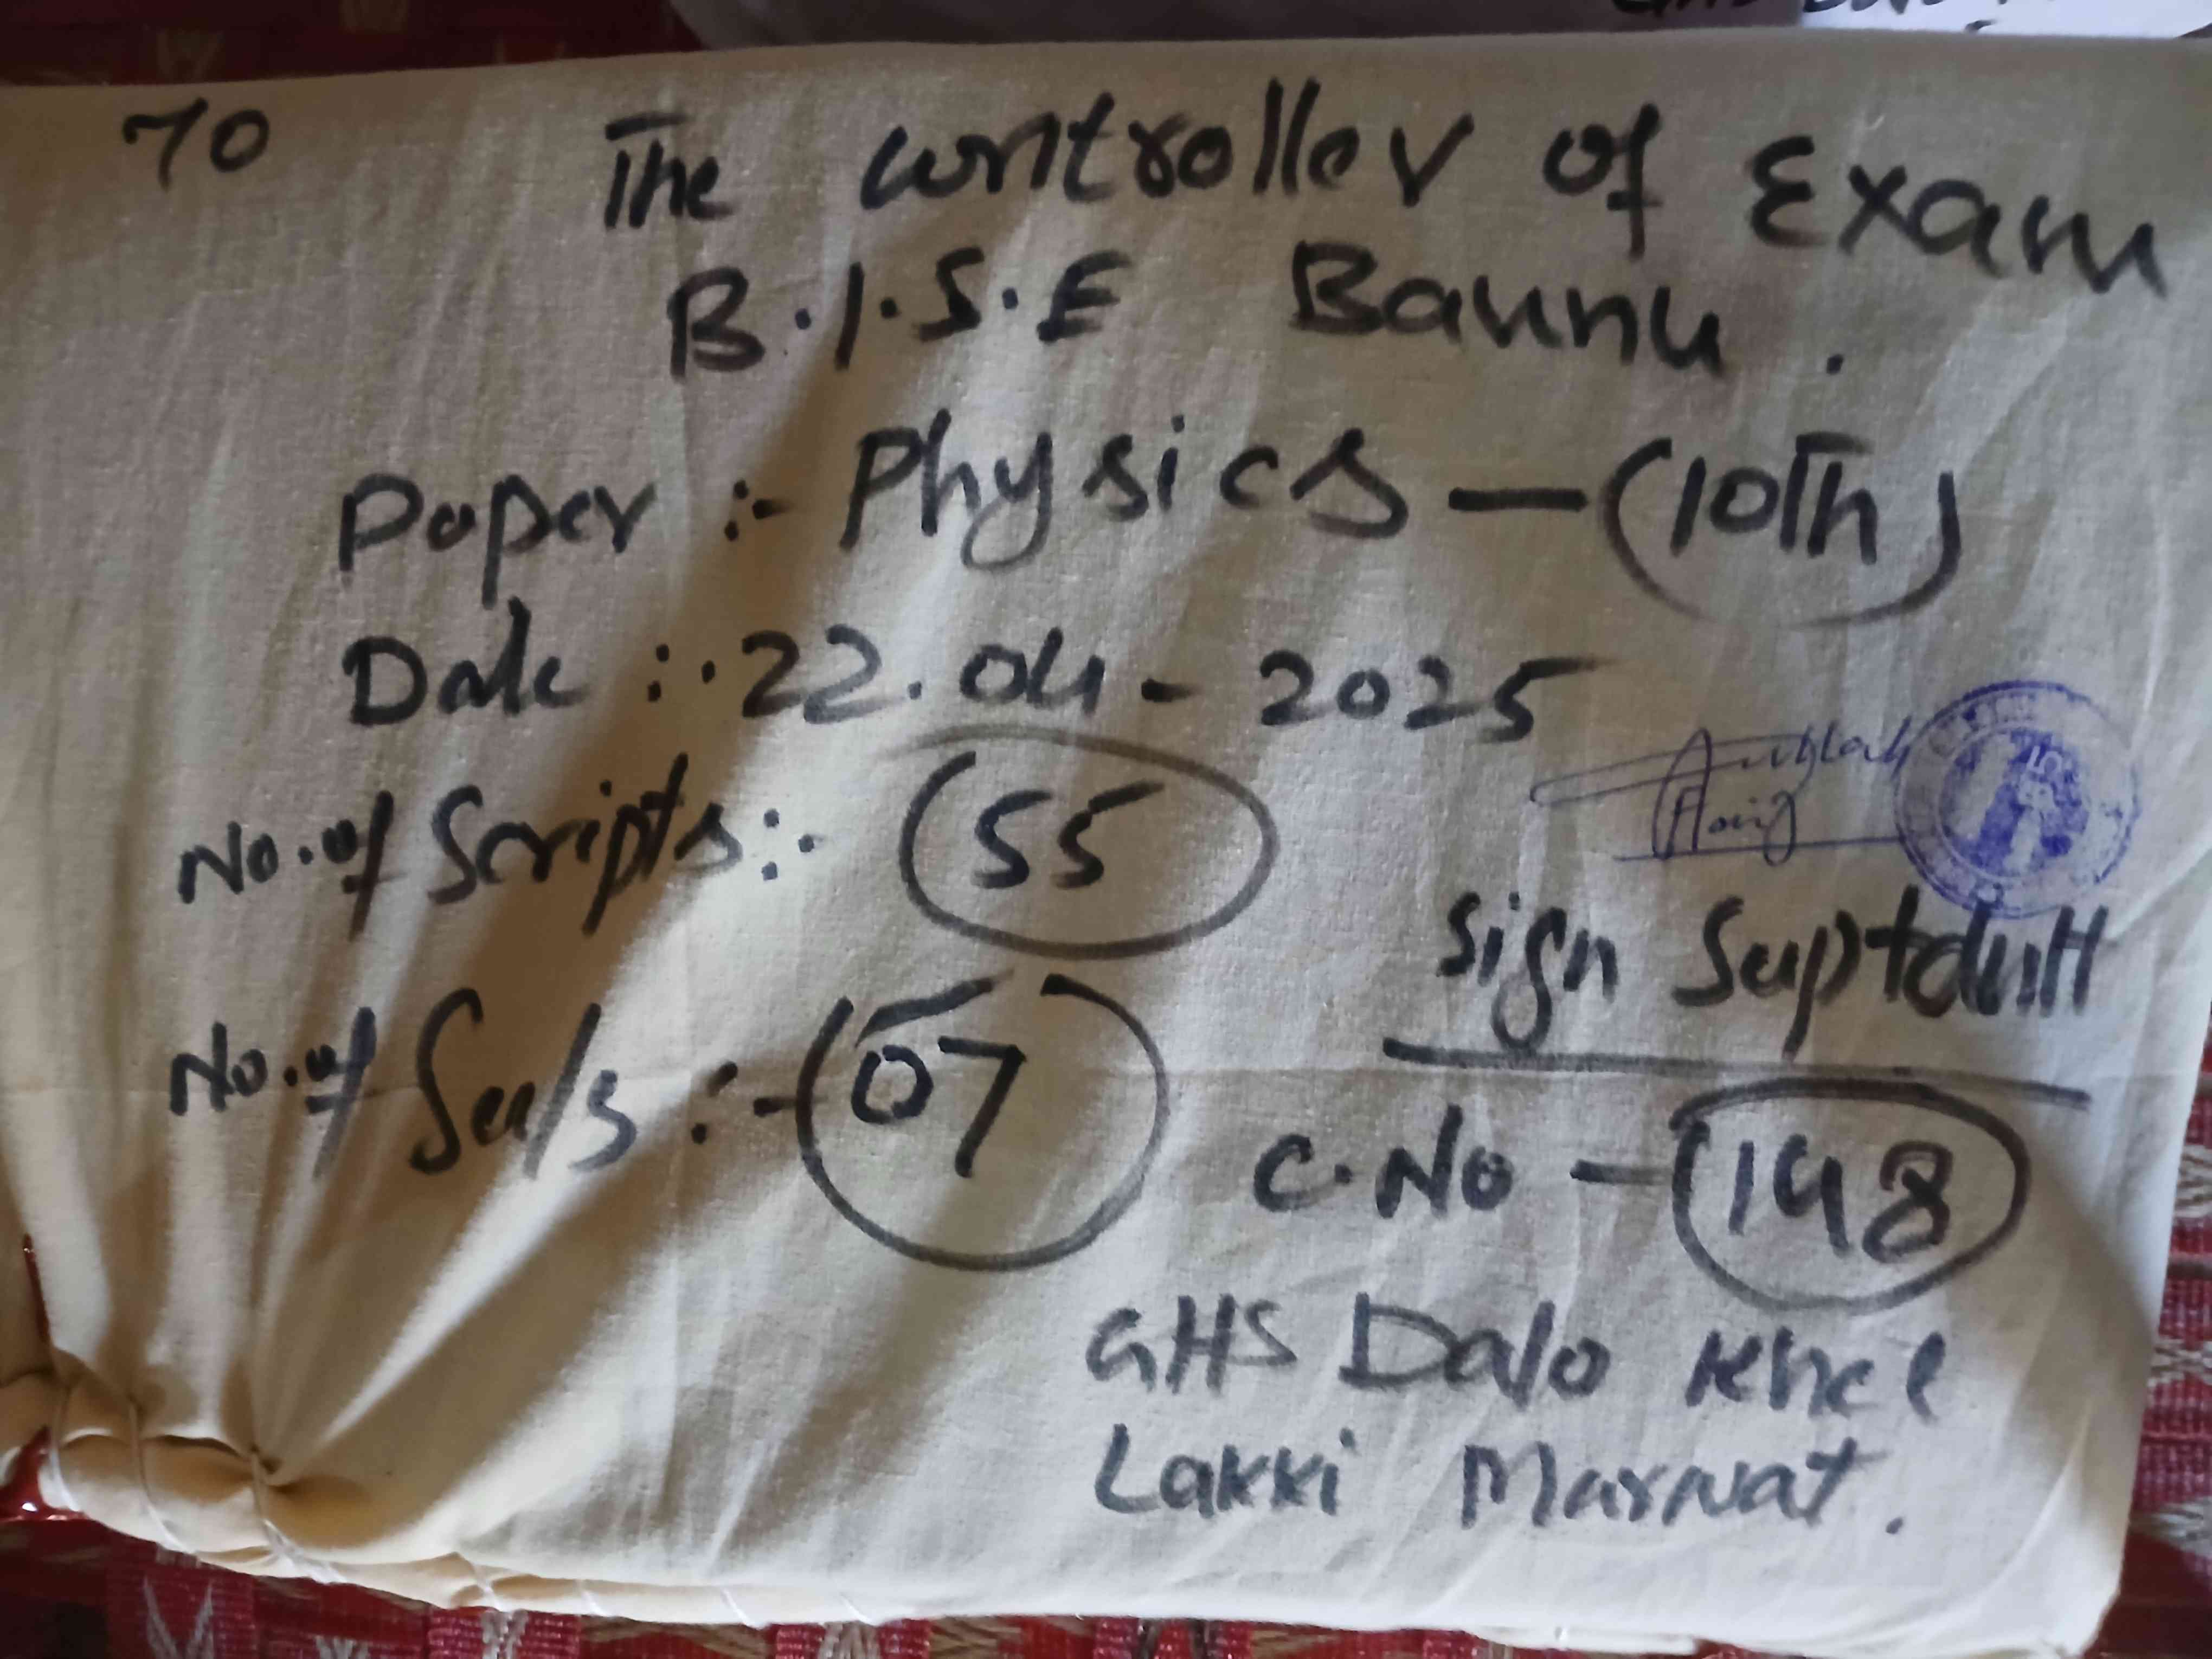 To The controller of Exam
B.I.S.E Bannu.
Paper :- Physics — (10Th)
Date :- 22.04-2025
No. of Scripts :- 55
No. of Seals :- 07
Sign Suptdntt
C.No - 148
GHS Dalo Khel
Lakki Marwat.